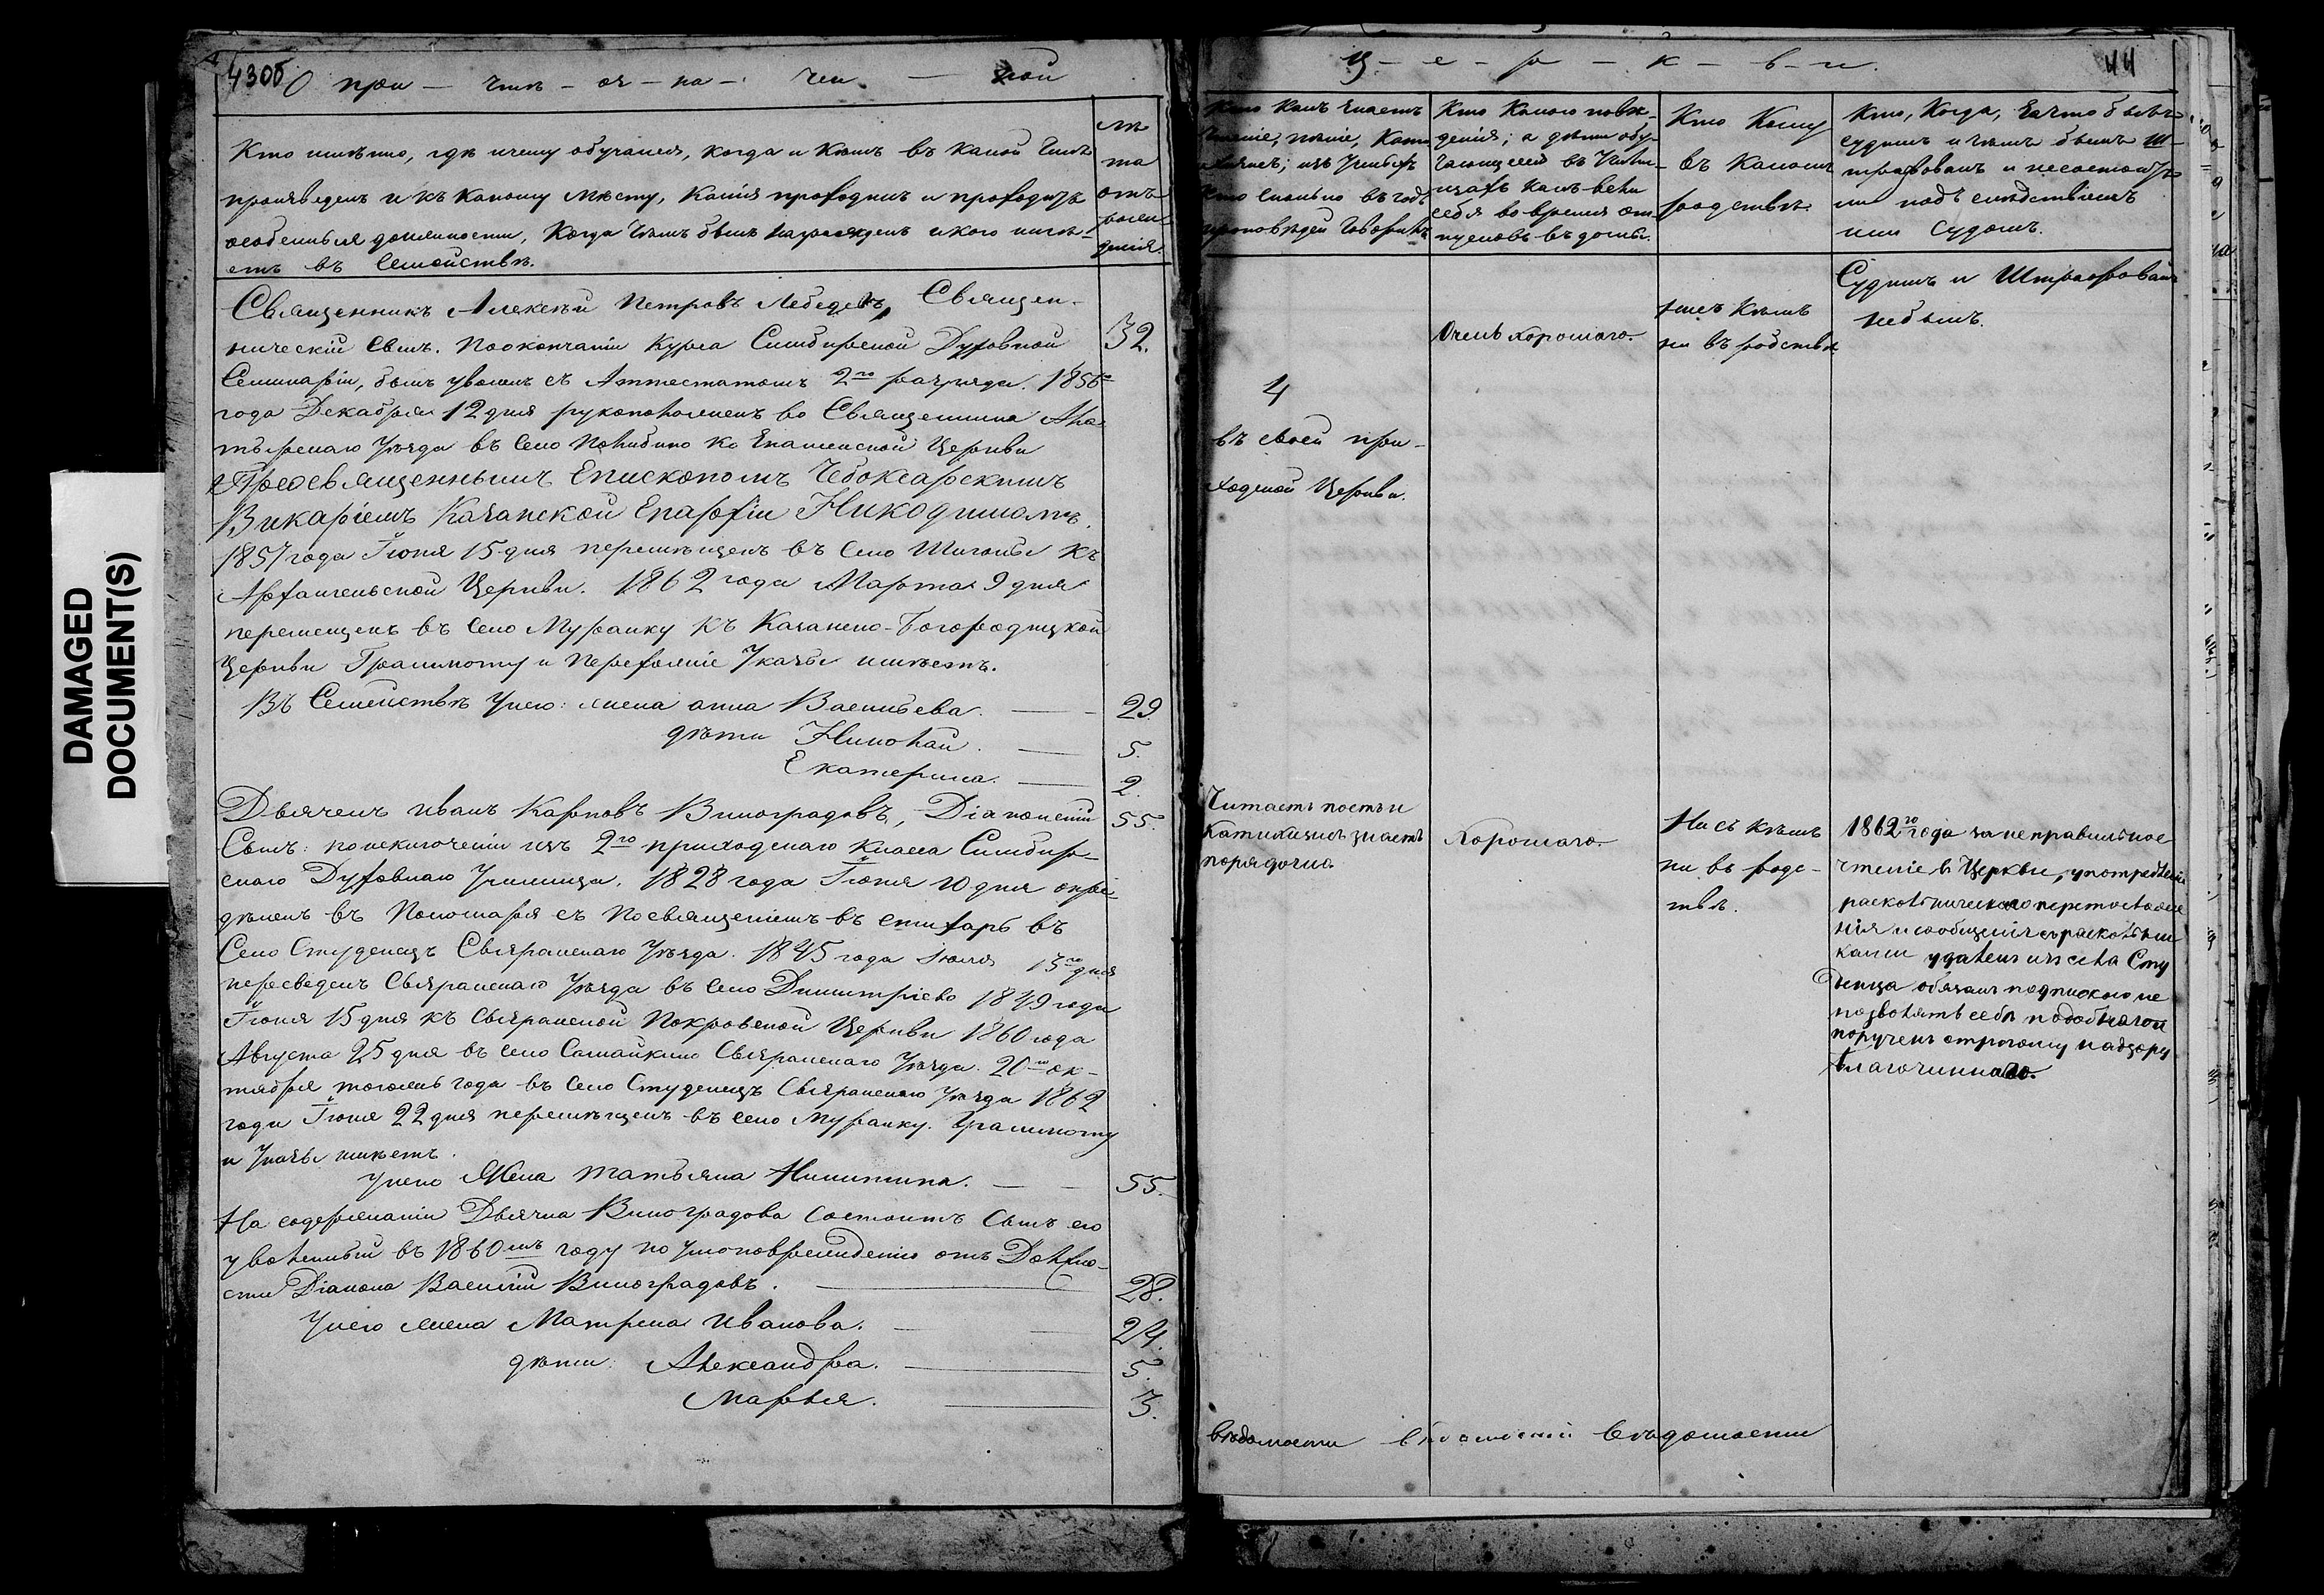 DAMAGED
DOCUMENT(S)
43об
О при - чтѣ - оз - на - чен - ной
Кто имянно, гдѣ и чему обучался, когда и кѣмъ въ какой чинъ
произведенъ и къ какому мѣсту, какія проходилъ и проходитъ
особенныя должности, когда чѣмъ былъ награжденъ и кого имѣ-
етъ въ семействѣ.
лѣ
та
отъ
рож
денія.
Священникъ Алексѣй Петровъ Лебедевъ, Священ-
ническій сынъ. По окончаніи курса Симбирской Духовной
32.
Семинаріи, былъ уволенъ съ Аттестатомъ 2го разряда. 1856
года Декабря 12 дня рукоположенъ во Священника Ала-
тырскаго уѣзда въ село Поливино ко Церкви
Преосвященнымъ Епископомъ Чебоксарскимъ
Викаріемъ Казанской Епархіи Никодимомъ.
1857 года Іюня 15 дня перемѣщенъ въ село Шигоны къ
Архангельской Церкви. 1862 года Марта 9 дня
перемещенъ въ село Муранку къ Казанско-Богородицкой
Церкви Граммоту и Перехожіе Указы имѣетъ.
Въ Семействѣ у него: жена Анна Васильева. 29.
дѣти Николай. 5.
Екатерина. 2.
Дьячекъ Иванъ Карповъ Виноградовъ, Діаконскій 55.
Сынъ: по исключеніи изъ 2го приходскаго класса Симбир-
скаго Духовнаго Училища. 1828 года Іюня 20 дня опре-
дѣленъ въ Пономаря съ посвященіемъ въ стихарь въ
Село Студенецъ Сызранскаго уѣзда. 1845 года Іюля 13го дня
переведенъ Сызранскаго уѣзда въ село Димитріево 1849 года
Іюня 15 дня къ Сызранской Покровской Церкви 1860 года
Августа 25 дня въ село Самайкино Сызранскаго уѣзда. 20го Ок-
тября тогоже года въ село Студенецъ Сызранскаго уѣзда 1862
года Іюня 22 дня перемѣщенъ въ село Муранку. Граммоту
и Указы имѣетъ.
У него Жена Татьяна Никитина. 55.
На содержаніи Дьячка Виноградова состоитъ сынъ его
уволенный въ 1860мъ году по умоповрежденію отъ Должно-
сти Діакона Василій Виноградовъ. 28.
У него жена Матрена Иванова. 24.
дѣти: Александра. 5.
Марья. 3.
Ц - е - р - к - в - и.
44
Кто какъ знаетъ
чтеніе, пѣніе, Кати-
хизисъ; изъ
Кто сколько въ годъ
проповѣдей говорилъ
Кто какого пове-
денія; а дѣти обу-
чающіеся въ Учили-
щахъ какъ вели
себя во время от-
пусковъ въ домы.
Кто кому
въ какомъ
родствѣ.
Кто, когда, за что былъ
судимъ и чѣмъ былъ ш-
трафованъ и не состоитъ
ли подъ слѣдствіемъ
или судомъ.
4
въ своей при-
ходской Церкви.
Очень хорошаго.
ни съ кѣмъ
ни въ родствѣ
Судимъ и Штрафованъ
небылъ.
Читаетъ поетъ и
Катихизисъ знаетъ
порядочно
Хорошаго.
Ни съ кѣмъ
ни въ родс-
твѣ.
1862го года за неправильное
чтеніе въ Церкви, употребленіе
раскольническаго перстосложе
нія и сообщенія съ раскольни
ками удаленъ изъ села Сту
денца обязанъ подпискою не
позволять себѣ подобнаго и
порученъ строгому надзору
благочиннаго.
вѣдомости вѣдомости